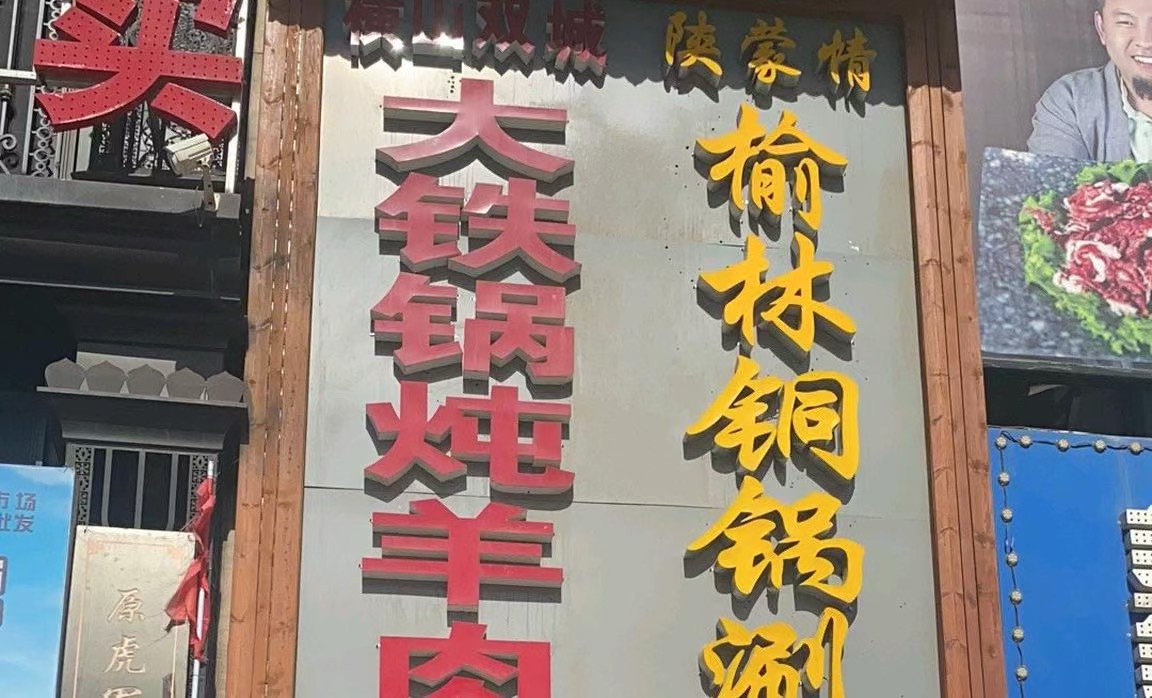 横山双城
大铁锅炖羊肉
陕蒙情
榆林铜锅涮
市场
批发
原虎